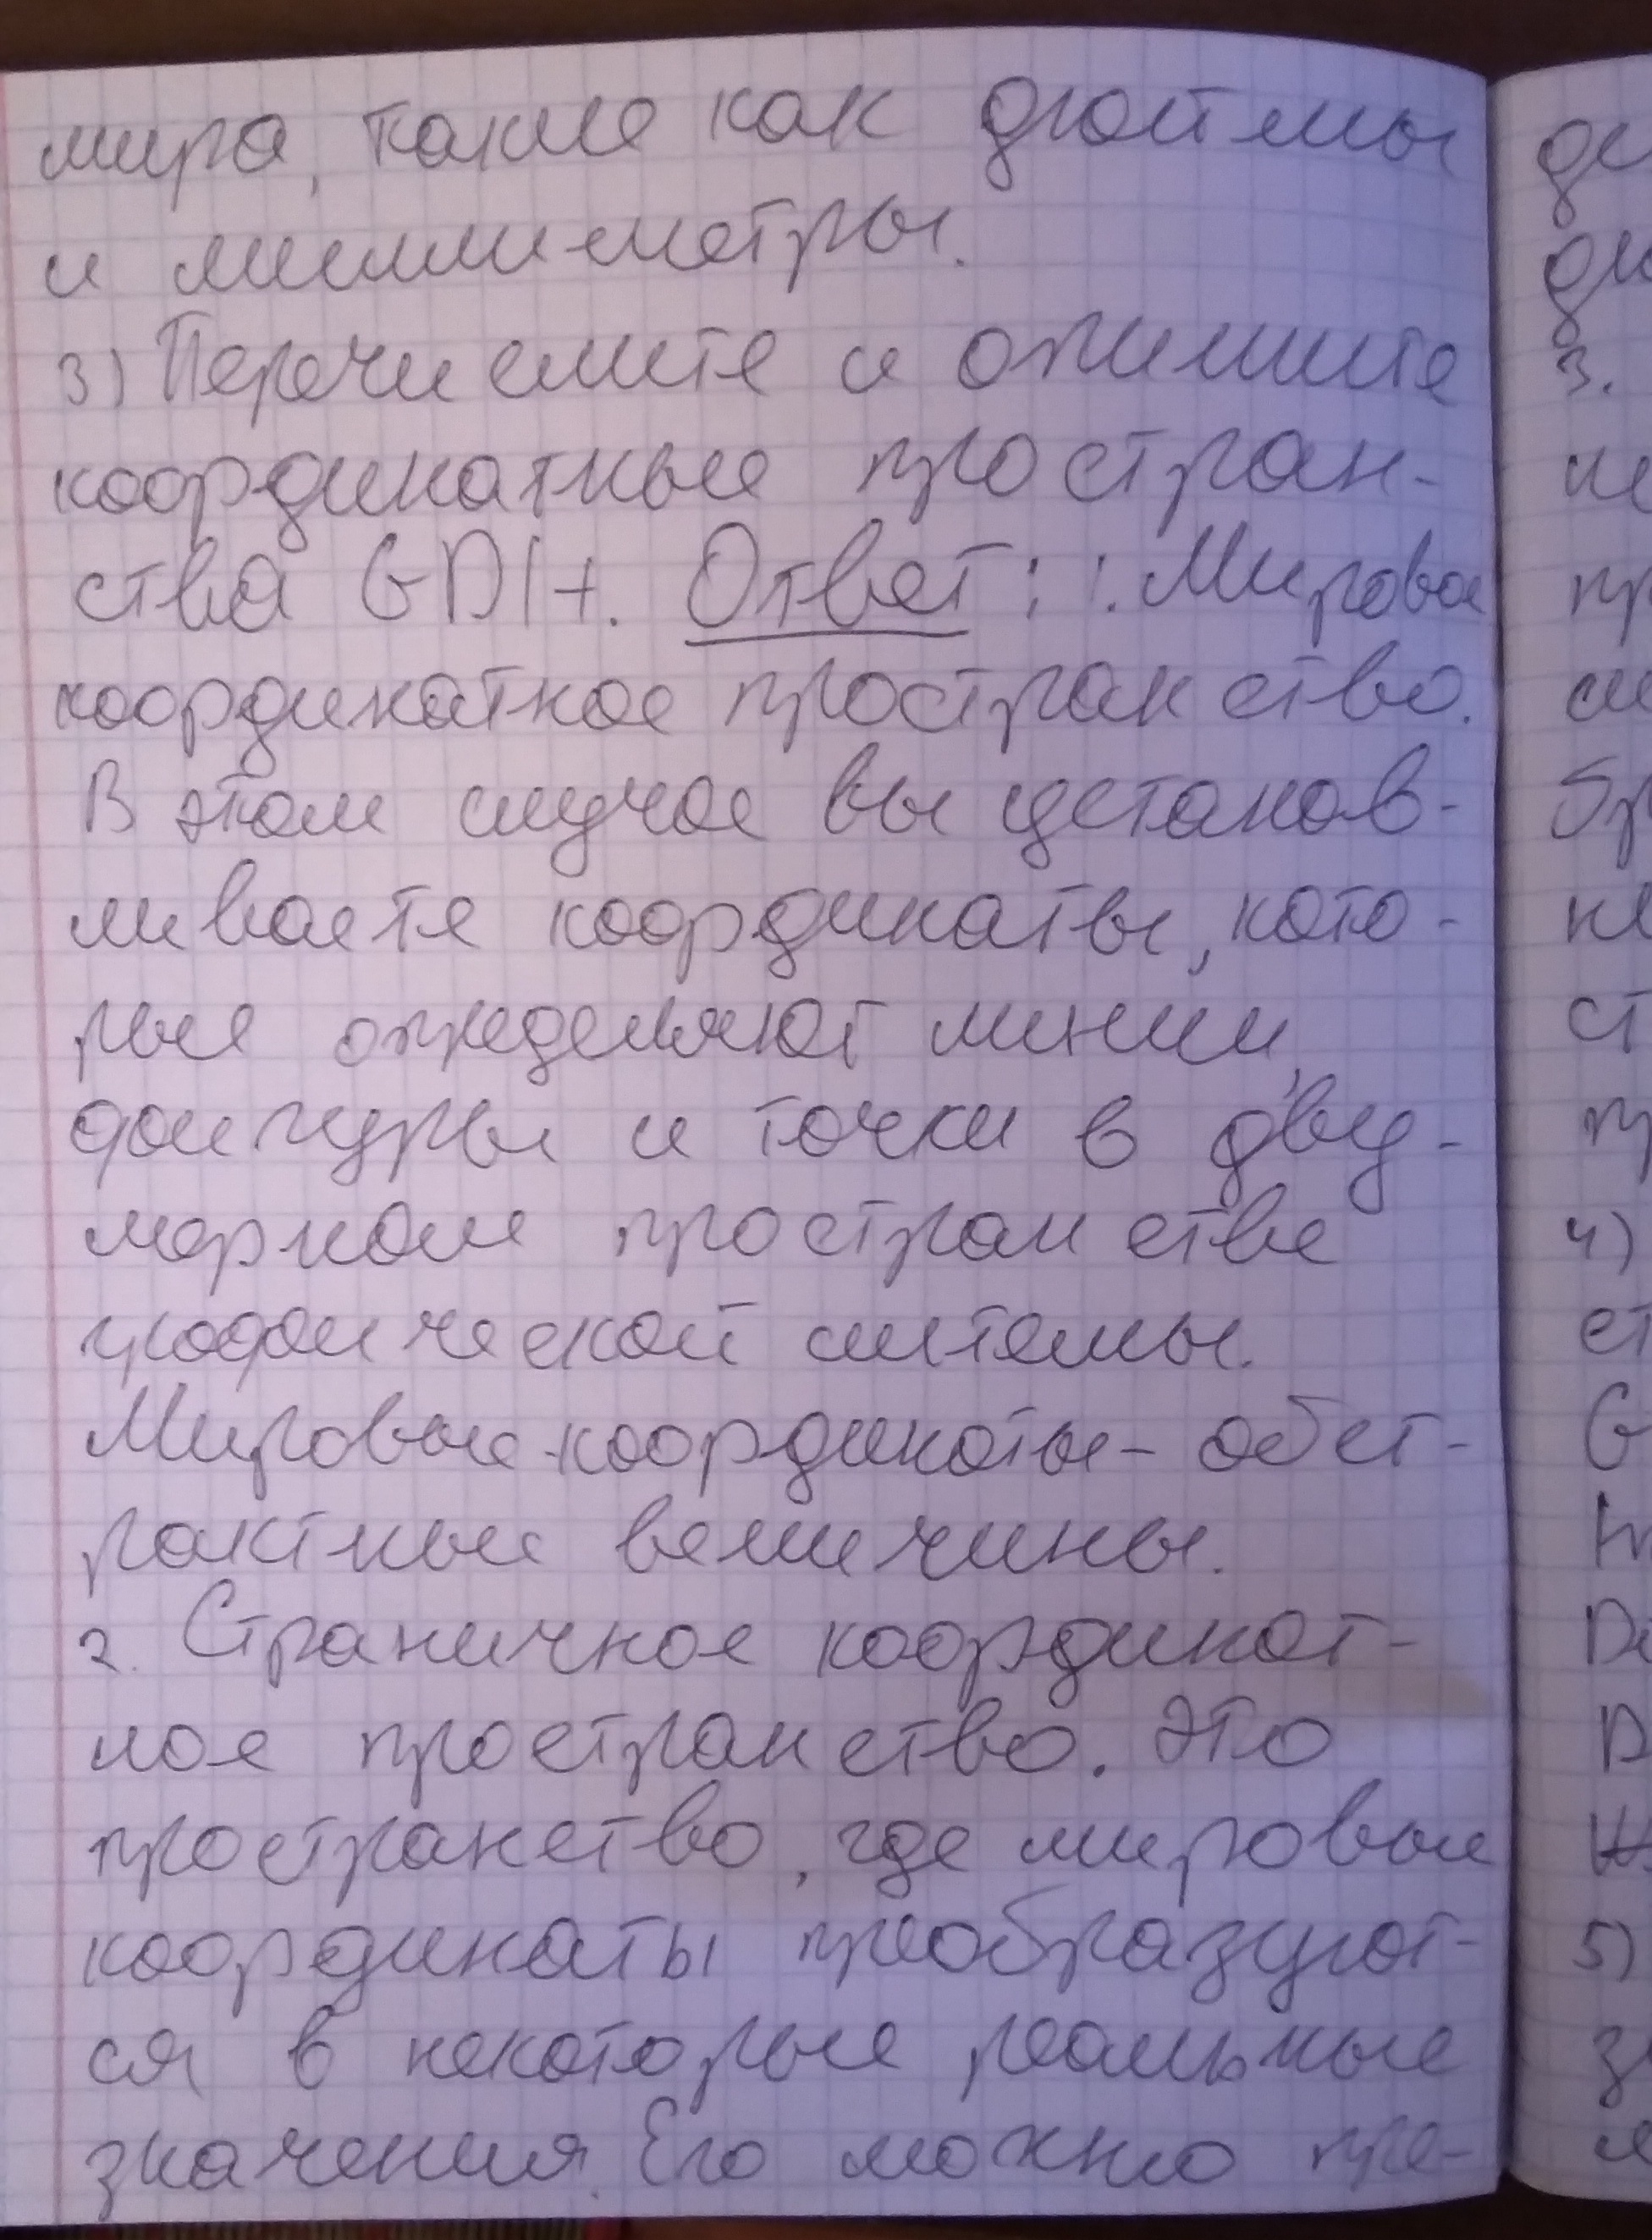 мира, такие как дюймы
и миллиметры.
3) Перечислите и опишите
координатные простран-
ства GDI+. Ответ: 1. Мировое
координатное пространство.
В этом случае вы устанав-
ливаете координаты, кото-
рые определяют линии,
фигуры и точки в дву-
мерном пространстве
графической системы.
Мировые координаты - абст-
рактные величины.
2. Страничное координат-
ное пространство. Это
пространство, где мировые
координаты преобразуют-
ся в некоторые реальные
значения. Его можно пре-
3.
4)
5)